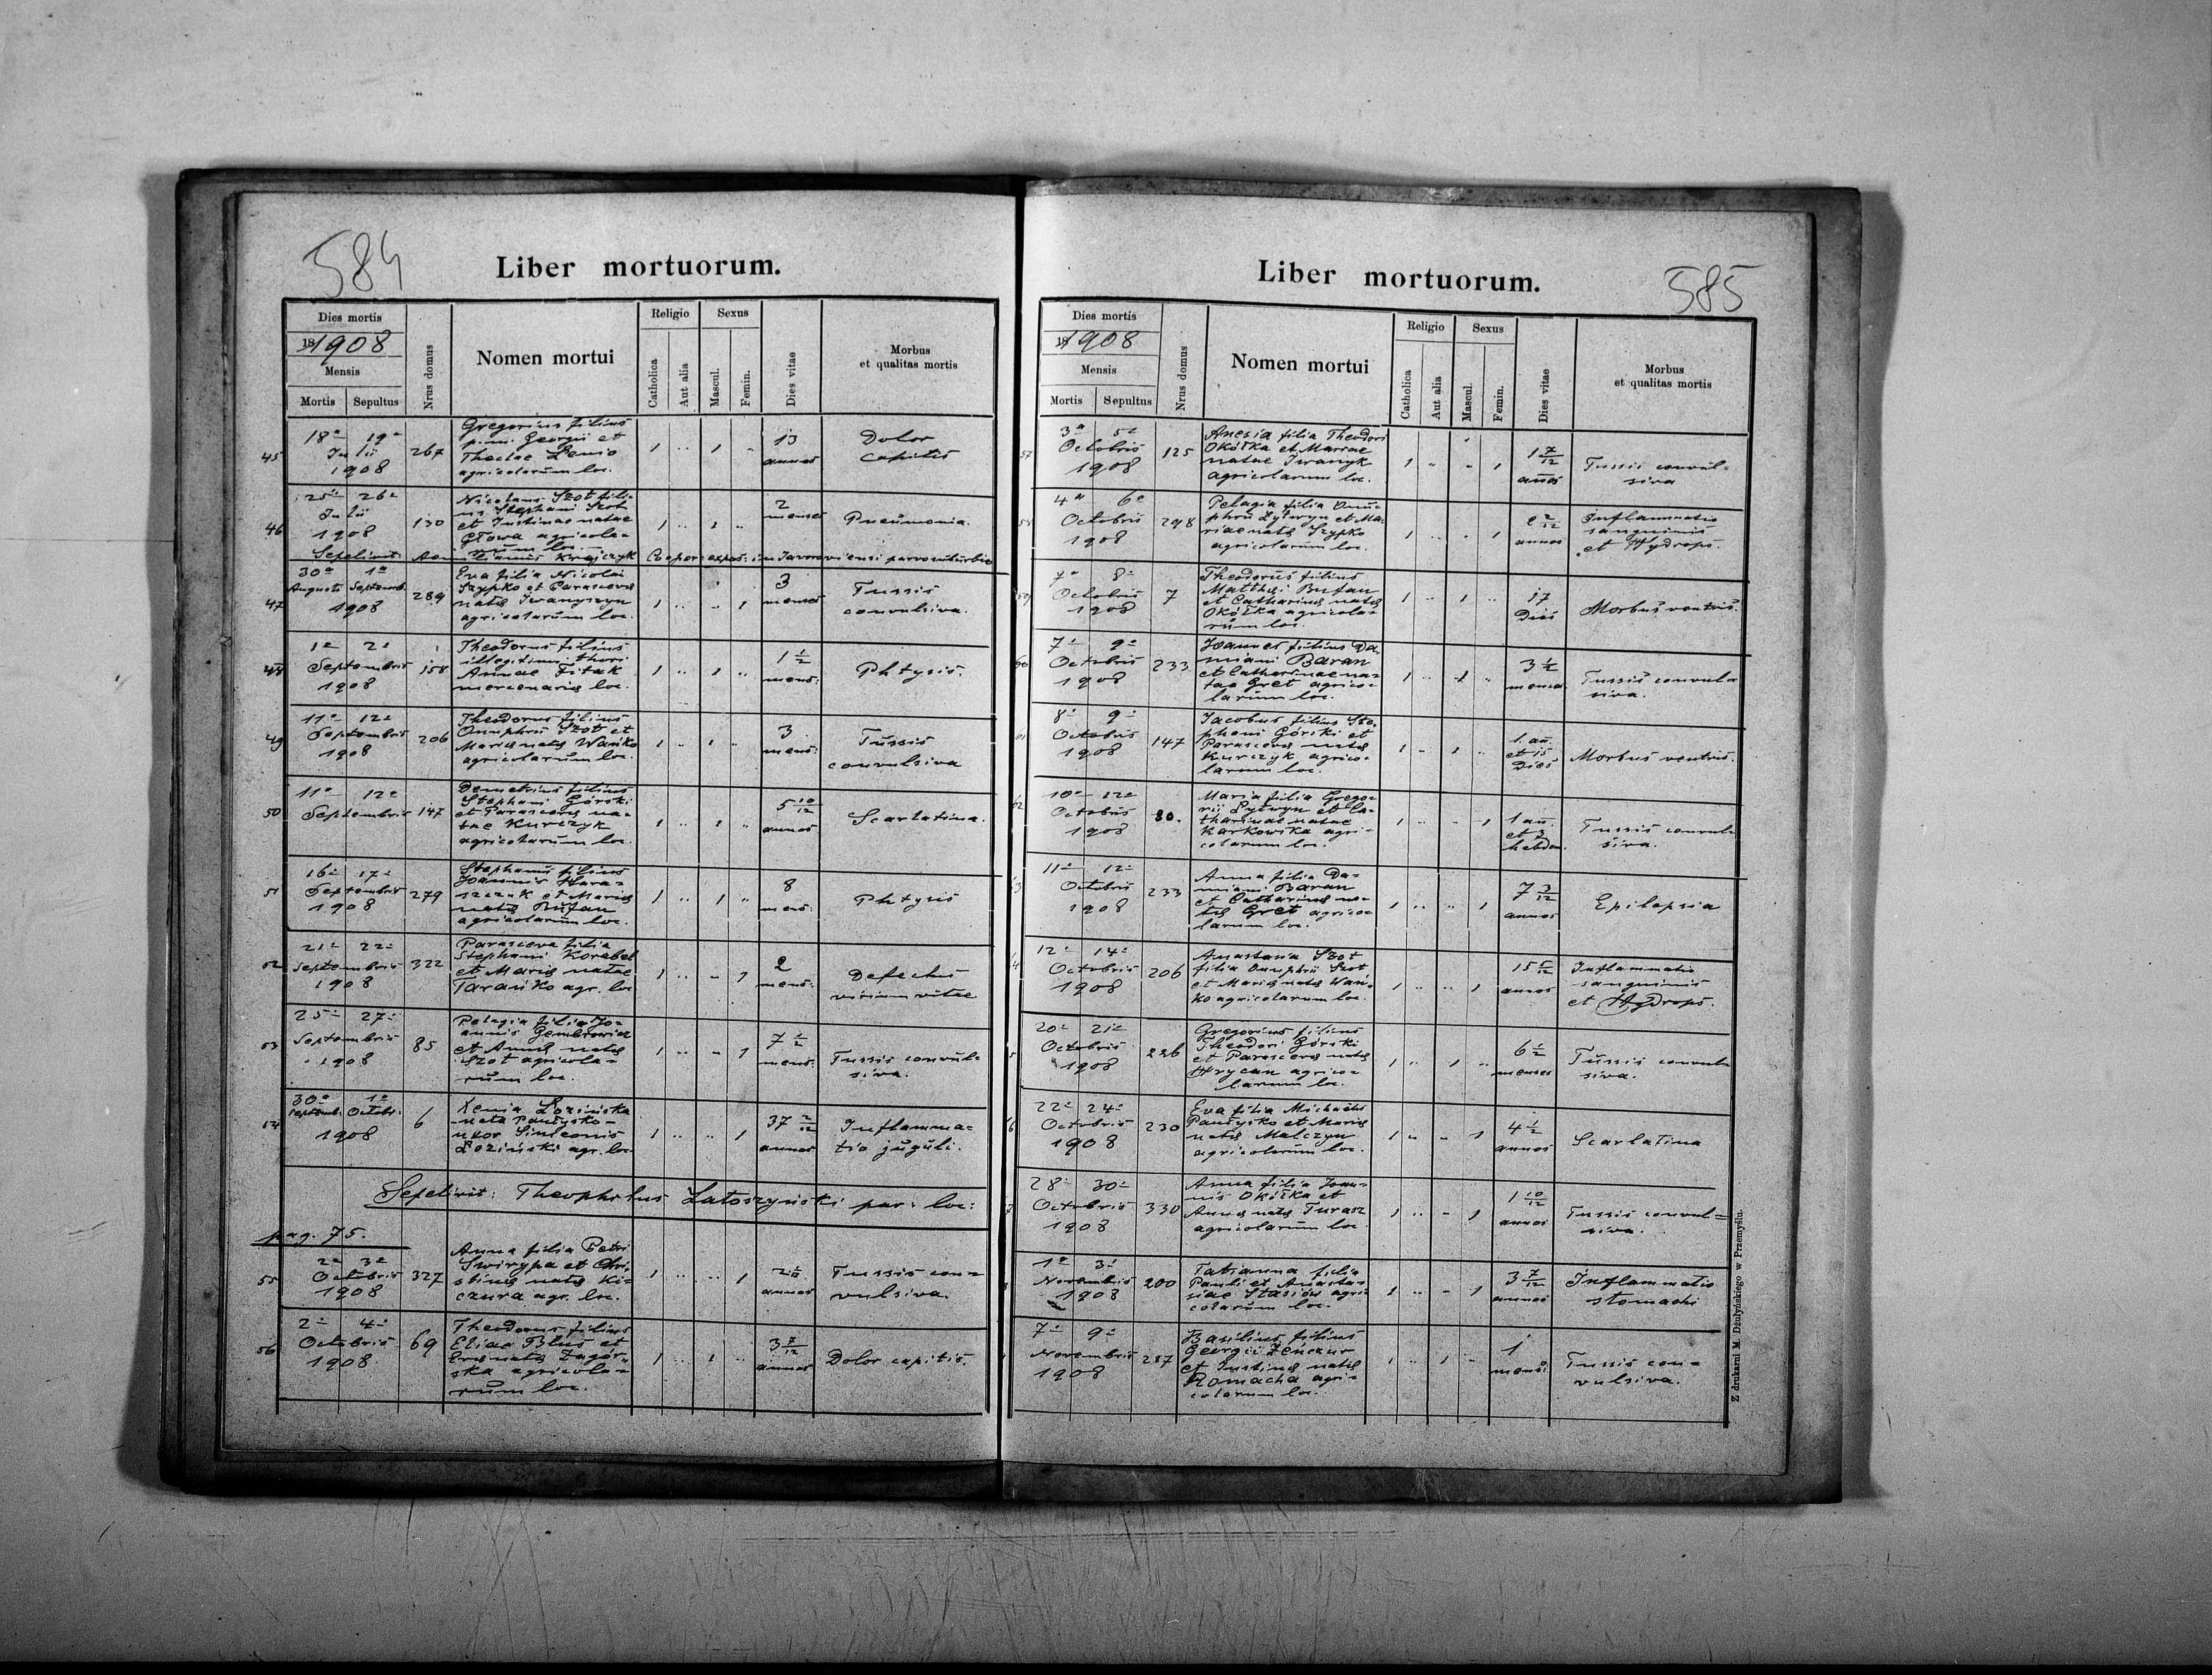 584
Liber mortuorum.
Dies mortis
18 1908
Mensis
Mortis Sepultus
Nrus domus
Nomen mortui
Religio
Catholica
Aut alia
Sexus
Mascul.
Femin.
Dies vitae
Morbus
et qualitas mortis
45
18ª 19ª
Julii
1908
267
Gregorius filius
p.m. Georgii et
Theclae Lenio
agricolarum loc.
1 " 1 "
13
annos
Dolor
capitis
46
25ª 26ª
Julii
1908
130
Nicolaus Szot fili-
us Stephani Szot
et Justinae natae
Głowa agricola-
rum loc.
1 " 1 "
2
menses
Pneumonia.
Sepelivit: Aemilianus Krajczyk Cooper: expos: in Javoroviensi parvo suburbio
47
30ª 1ª
Augusti Septemb.
1908
289
Eva filia Nicolai
Szypko et Parascevae
natae Iwanyszyn
agricolarum loc.
1 " " 1
3
menses
Tussis
convulsiva.
48
1ª 2ª
Septembris
1908
158
Theodorus filius
illegitimi thori
Annae Fitak
mercenariae loc.
1 " 1 "
1 1/2
mens:
Phtysis.
49
11ª 12ª
Septembris
1908
206
Theodorus filius
Onuphrii Szot et
Mariae natae Wańko
agricolarum loc.
1 " 1 "
3
mens:
Tussis
convulsiva
50
11ª 12ª
Septembris
147
Demetrius filius
Stephani Górski
et Parascevae na-
tae Kurczyk
agricolarum loc.
1 " 1 "
5 10/12
annos
Scarlatina.
51
16ª 17ª
Septembris
1908
279
Stephanus filius
Joannis Hara-
szczuk et Mariae
natae Bufan
agricolarum loc.
1 " 1 "
8
mens:
Phtysis
52
21ª 22ª
Septembris
1908
322
Parasceva filia
Stephani Korebel
et Mariae natae
Tarańko agr. loc
1 " " 1
2
mens:
Defectus
virium vitae
53
25ª 27ª
Septembris
1908
85
Pelagia filia Jo-
annis Gembrowicz
et Annae natae
Szot agricola-
rum loc.
1 " " 1
7 1/2
mens:
Tussis convul-
siva.
54
30ª 1ª
Septemb. Octobr.
1908
6
Xenia Łozińska
nata Pawłysko
uxor Simeonis
Łoziński agr. loc
1 " " 1
37 2/12
annos
Inflamma-
tio juguli.
Sepelivit: Theophilus Łatoszyński par: loc:
pag. 75.
55
2ª 3ª
Octobris
1908
327
Anna filia Petri
Swirypa et Chri-
stinae natae Ki-
czura agr. loc.
1 " " 1
annos
Tussis con-
vulsiva.
56
2ª 4ª
Octobris
1908
69
Theodorus filius
Eliae Blus et
Evae natae Zagór-
ska agricola-
rum loc.
1 " 1 "
3 7/12
annos
Dolor capitis.
585
Liber mortuorum.
Dies mortis
18 1908
Mensis
Mortis Sepultus
Nrus domus
Nomen mortui
Religio
Catholica
Aut alia
Sexus
Mascul.
Femin.
Dies vitae
Morbus
et qualitas mortis
57
3ª 5ª
Octobris
1908
125
Anesia filia Theodori
Okółka et Mariae
natae Iwanyk
agricolarum loc.
1 " " 1
1 7/12
annos
Tussis convul-
siva
58
4ª 6ª
Octobris
1908
298
Pelagia filia Onu-
phrii Łytwyn et Ma-
riae natae Szypko
agricolarum loc.
1 " " 1
2 2/12
annos
Inflammatio
sanguinis
et Hydrops.
59
7ª 8ª
Octobris
1908
7
Theodorus filius
Matthei Bufan
et Catharinae natae
Okółka agricola-
rum loc.
1 " 1 "
17
Dies
Morbus ventris.
60
7ª 9ª
Octobris
1908
233
Joannes filius Da-
miani Baran
et Catharinae na-
tae Gret agrico-
larum loc.
1 " 1 "
3 1/2
menses
Tussis convul-
siva.
61
8ª 9ª
Octobris
1908
147
Jacobus filius Ste-
phani Górski et
Parascevae natae
Kurczyk agrico-
larum loc.
1 " 1 "
1 an.
et 15
Dies
Morbus ventris.
62
10ª 12ª
Octobris
1908
80.
Maria filia Grego-
rii Łytwyn et Ca-
tharinae natae
Karkowska agri-
colarum loc.
1 " " 1
1 an.
et 3
hebdom.
Tussis convul-
siva.
3
11ª 12ª
Octobris
1908
233
Anna filia Da-
miani Baran
et Catharinae na-
tae Gret agrico-
larum loc.
1 " " 1
7 3/12
annos
Epilepsia
4
12ª 14ª
Octobris
1908
206
Anastasia Szot
filia Onuphrii Szot
et Mariae natae Wań-
ko agricolarum loc.
1 " " 1
15 5/12
annos
Inflammatio
sanguinis
et Hydrops.
5
20ª 21ª
Octobris
1908
226
Gregorius filius
Theodori Górski
et Parascevae natae
Hrycan agrico-
larum loc.
1 " 1 "
6 1/2
menses
Tussis convul-
siva.
6
22ª 24ª
Octobris
1908
230
Eva filia Michaelis
Pawłysko et Mariae
natae Malczyn
agricolarum loc.
1 " " 1
4 1/2
annos
Scarlatina
7
28ª 30ª
Octobris
1908
330
Anna filia Joan-
nis Okółka et
Annae natae Turasz
agricolarum loc.
1 " " 1
1 10/12
annos
Tussis convul-
siva.
1ª 3ª
Novembris
1908
200
Tatianna filia
Pauli et Anasta-
siae Stasiów agri-
colarum loc.
1 " " 1
3 7/12
annos
Inflammatio
stomachi
7ª 9ª
Novembris
1908
287
Basilius filius
Georgii Zenczur
et Justinae natae
Romacha agri-
colarum loc.
1 " 1 "
1
mens:
Tussis con-
vulsiva.
Z drukarni M. Dżułyńskiego w Przemyślu.